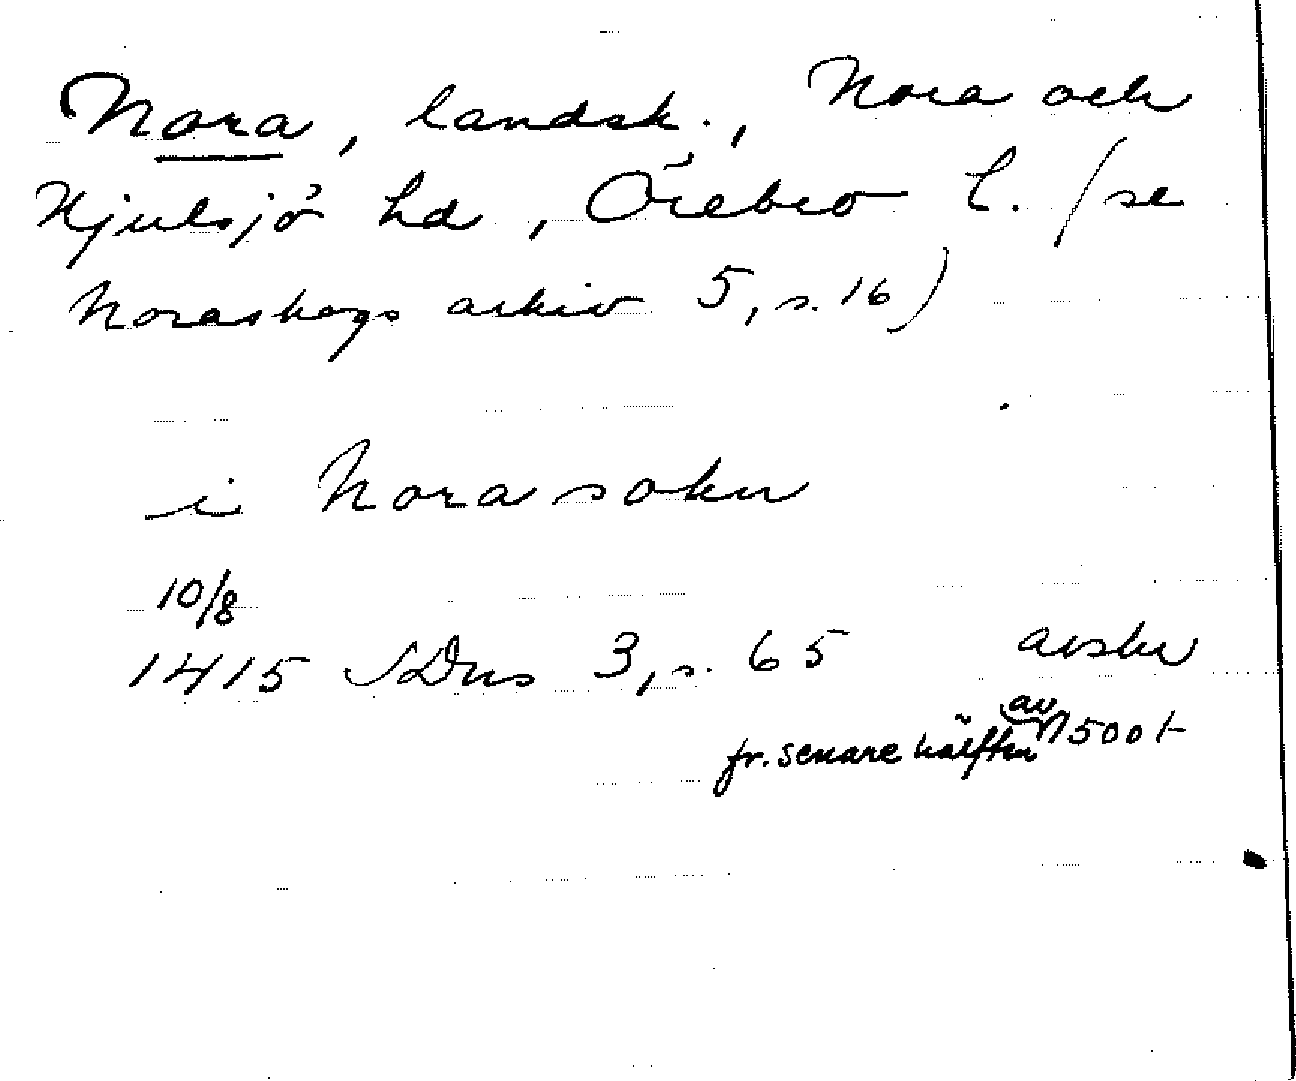 Nora, landsk., Nora och
Hjulsjö hd, Örebro l. (se
Noraskogs arkiv 5, s. 16)
i Nora sokn
10/8
1415 SDns 3, s. 65 avskr
fr. senare hälften av 1500 t